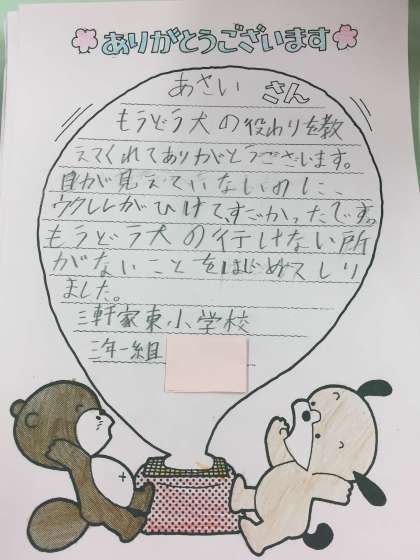 ありがとうございます
あさい さん
もうどう犬の役わりを教
えてくれてありがとうございます。
目が見えていないのに、
ウクレレがひけて、すごかったです。
もうどう犬の行けない所
がないことをはじめてしり
ました。
三軒家東小学校
三年一組